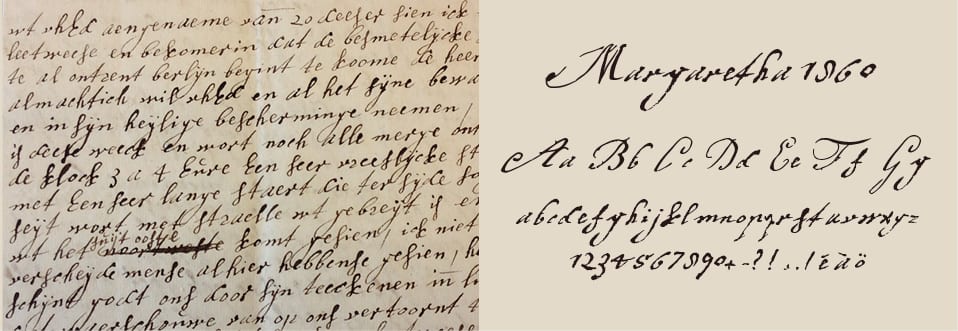 wt vhEd aengenaeme van 20 deeser sien ick
leetweese en bekomerin dat de besmetelijcke
te al ontrent berlyn begint te koome de heer
almachtich wil vhEd en al het syne bewa
en in syn heylige bescherminge neemen,
is deese weeck en wort noch alle merge ont
de klock 3 a 4 Eure Een seer vreeslycke st
met Een seer lange staert die ter syde
seyt wort met straelle wt gebreyt is en
suijt ooste
wt het noortweste komt gesien, ick niet
verscheyde mense alhier hebbense gesien, h
schynt godt ons door syn teeckenen in
waerschouwe van op ons vertoornt
Margaretha 1860
Aa Bb Cc Dd Ee Ff Gg
abcdefghijklmnopqrstuvwxyz
1234567890+-?!..!ēäö